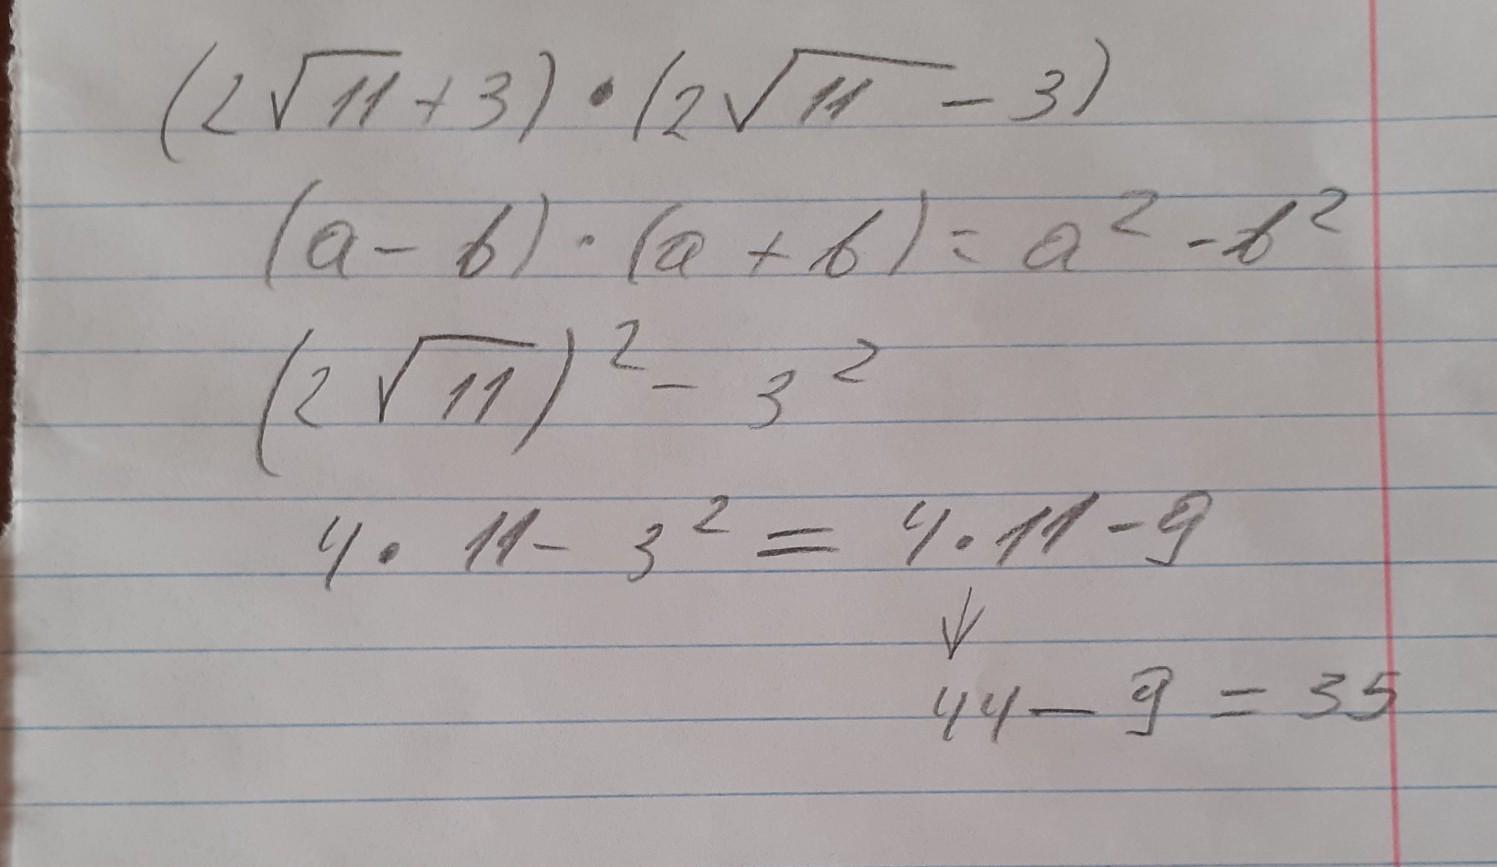 (2√11 + 3) · (2√11 - 3)
(a - b) · (a + b) = a² - b²
(2√11)² - 3²
4 · 11 - 3² = 4 · 11 - 9
↓
44 - 9 = 35